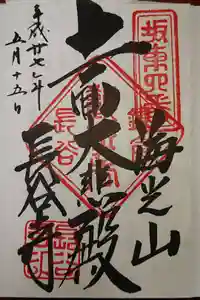 坂東四番
海光山
十一面大悲殿
長谷
長谷寺
平成廿七年
五月十五日